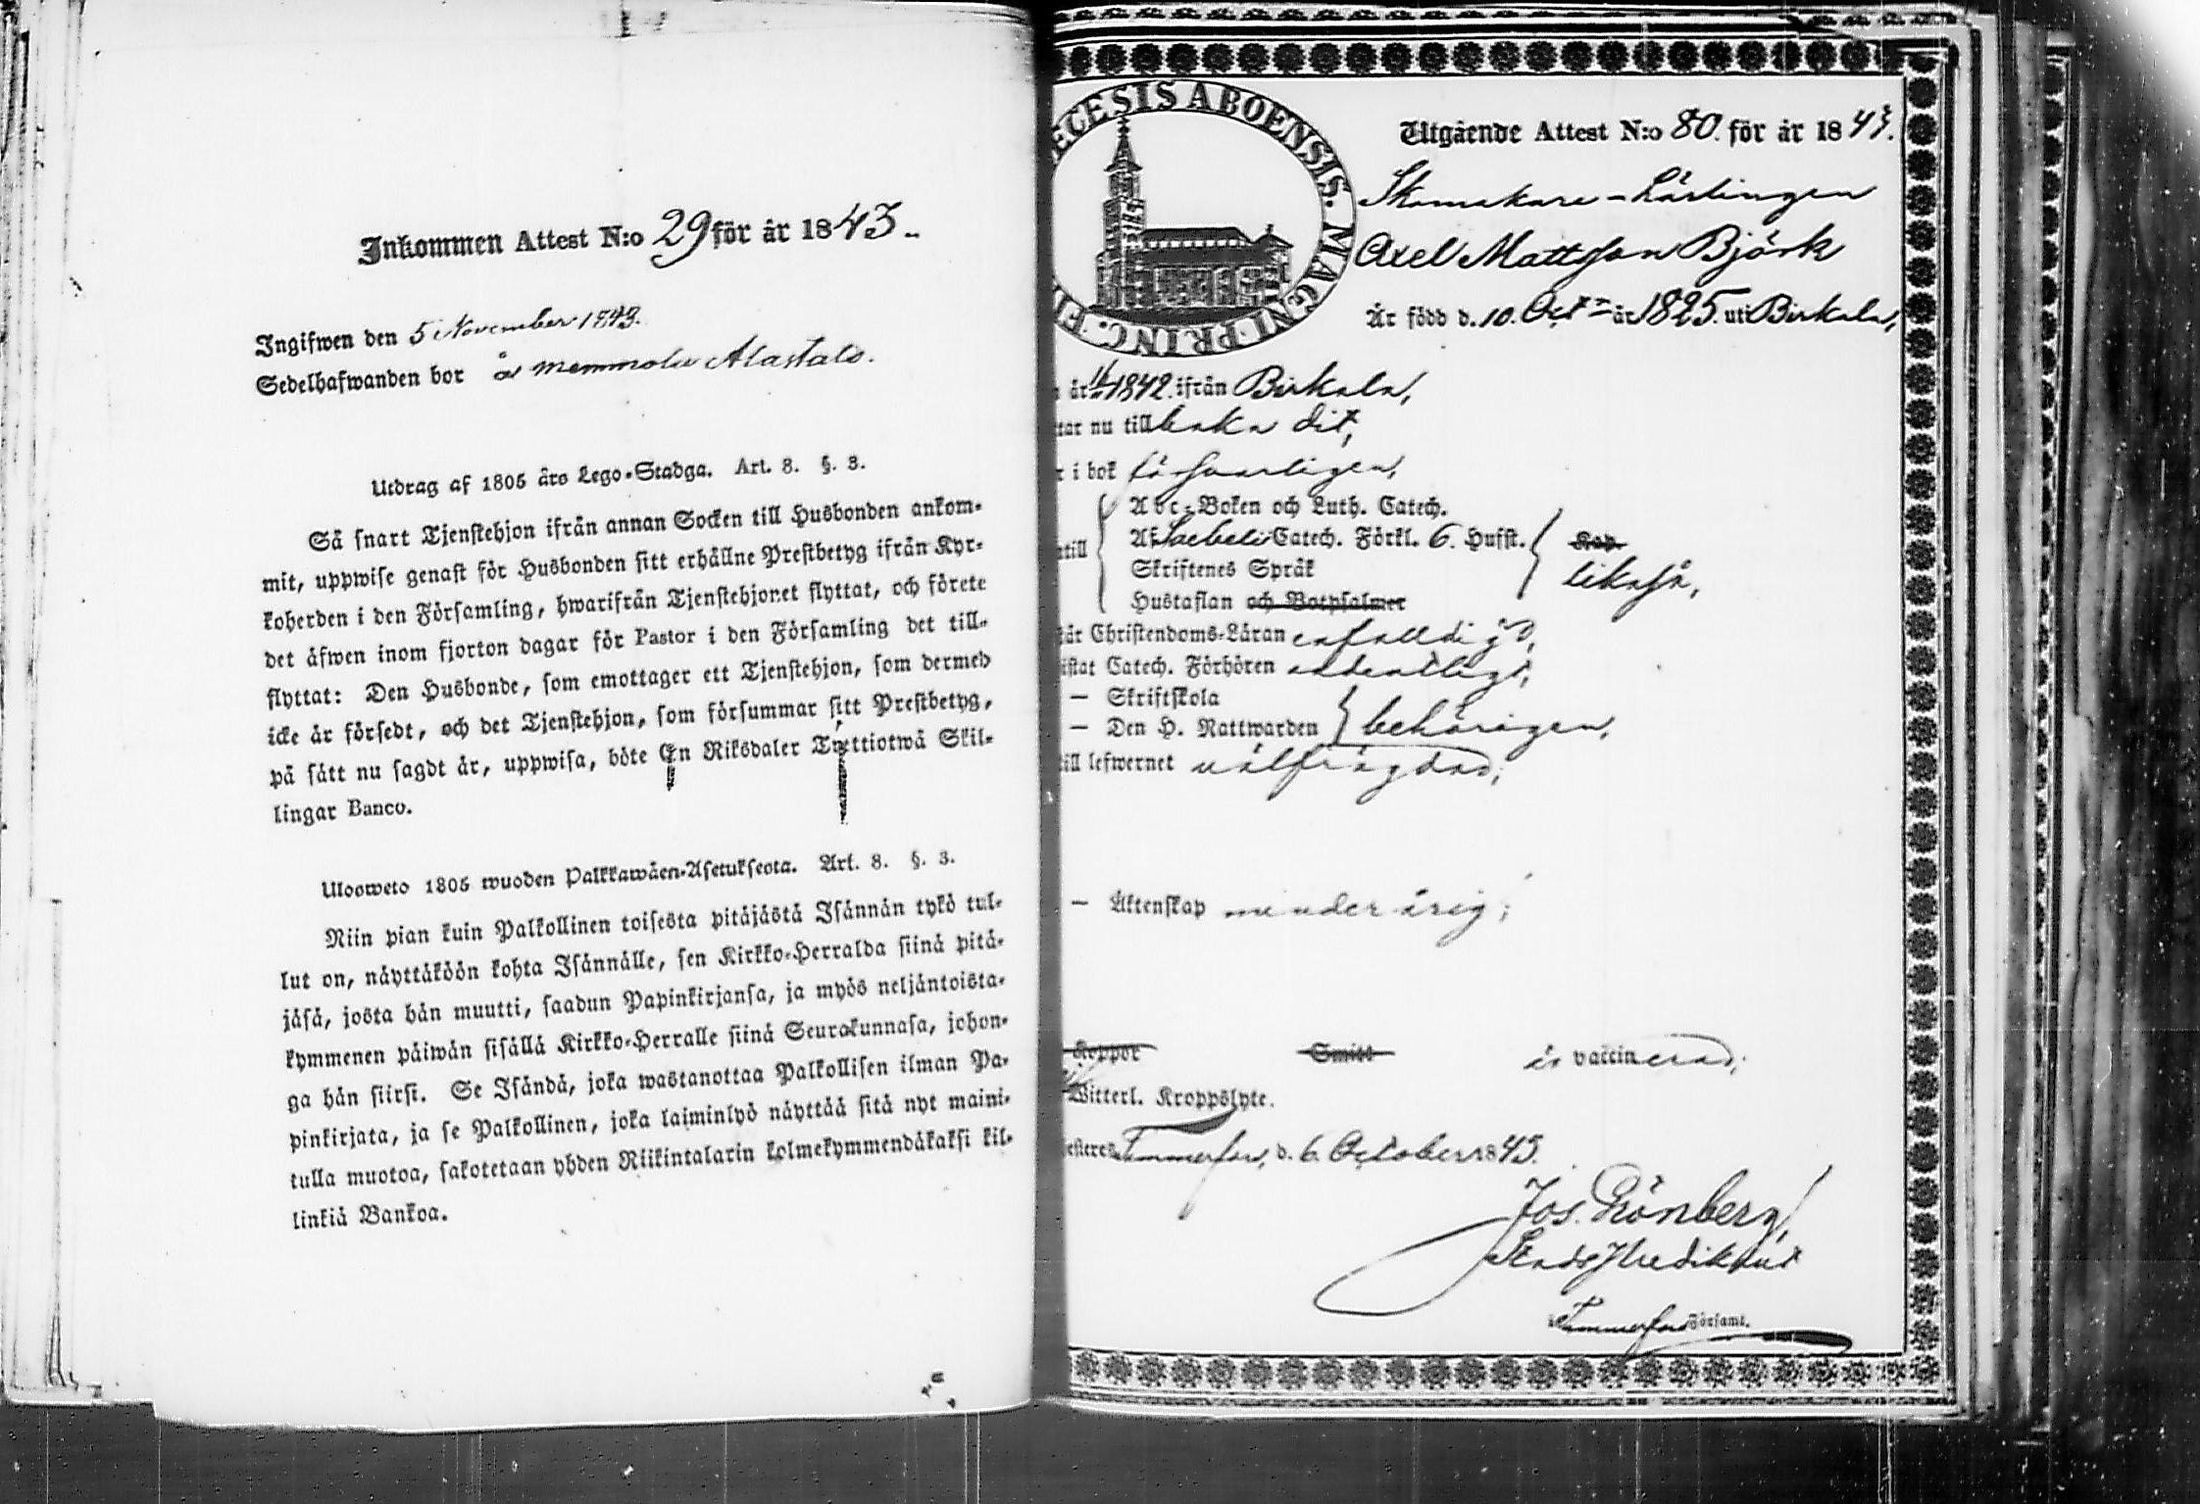 Inkommen Attest N:o 29 för år 1843.
Ingifwen den 5 November 1843.
Sedelhafwanden bor å memmola Alastalo.
Utdrag af 1805 års Lego-Stadga. Art. 8. §. 3.
Så snart Tjenstehjon ifrån annan Socken till Husbonden ankom-
mit, uppwise genast för Husbonden sitt erhållne Prestbetyg ifrån Kyr-
koherden i den Församling, hwarifrån Tjenstehjonet flyttat, och förete
det äfwen inom fjorton dagar för Pastor i den Församling det till-
flyttat: Den Husbonde, som emottager ett Tjenstehjon, som dermed
icke är försedt, och det Tjenstehjon, som försummar sitt Prestbetyg,
på sätt nu sagdt är, uppwisa, böte En Riksdaler Trettiotwå Skil-
lingar Banco.
Ulosweto 1805 wuoden Palkkawäen-Asetuksesta. Art. 8. §. 3.
Niin pian kuin Palkollinen toisesta pitäjästä Isännän tykö tul-
lut on, näyttäköön kohta Isännälle, sen Kirkko-Herralda siinä pitä-
jäsä, josta hän muutti, saadun Papinkirjansa, ja myös neljäntoista-
kymmenen päiwän sisällä Kirkko-Herralle siinä Seurakunnasa, johon-
ga hän siirsi. Se Isändä, joka wastanottaa Palkollisen ilman Pa-
pinkirjata, ja se Palkollinen, joka laiminlyö näyttää sitä nyt maini-
tulla muotoa, sakotetaan yhden Riikintalarin kolmekymmendäkaksi kil-
linkiä Bankoa.
ECESIS ABOENSIS. MAGNI PRINC. FI
Utgående Attest N:o 80. för år 1843.
Skomakare-Lärlingen
Axel Mattsson Björk
Är född d. 10. Oct:r år 1825. uti Birkala,
år 1842. ifrån Birkala,
tar nu tillbaka dit,
i bok försvarligen,
Abc-Boken och Luth. Catech.
Af Saebelii Catech. Förkl. 6. Hufst.
till
likaså,
Skriftenes Språk
Hustaflan och Botpsalmer
tår Christendoms-Läran enfaldigt,
istat Catech. Förhören ordentligt,
— Skriftskola
— Den H. Nattwarden behörigen,
till lefwernet välfrägdad,
— Äktenskap minderårig;
Koppor Smitt är vaccinerad;
Witterl. Kroppslyte.
esteres Tammerfors, d. 6. October 1843.
Jos. Grönberg
Stads Predikant
i Tammerfors Församl.